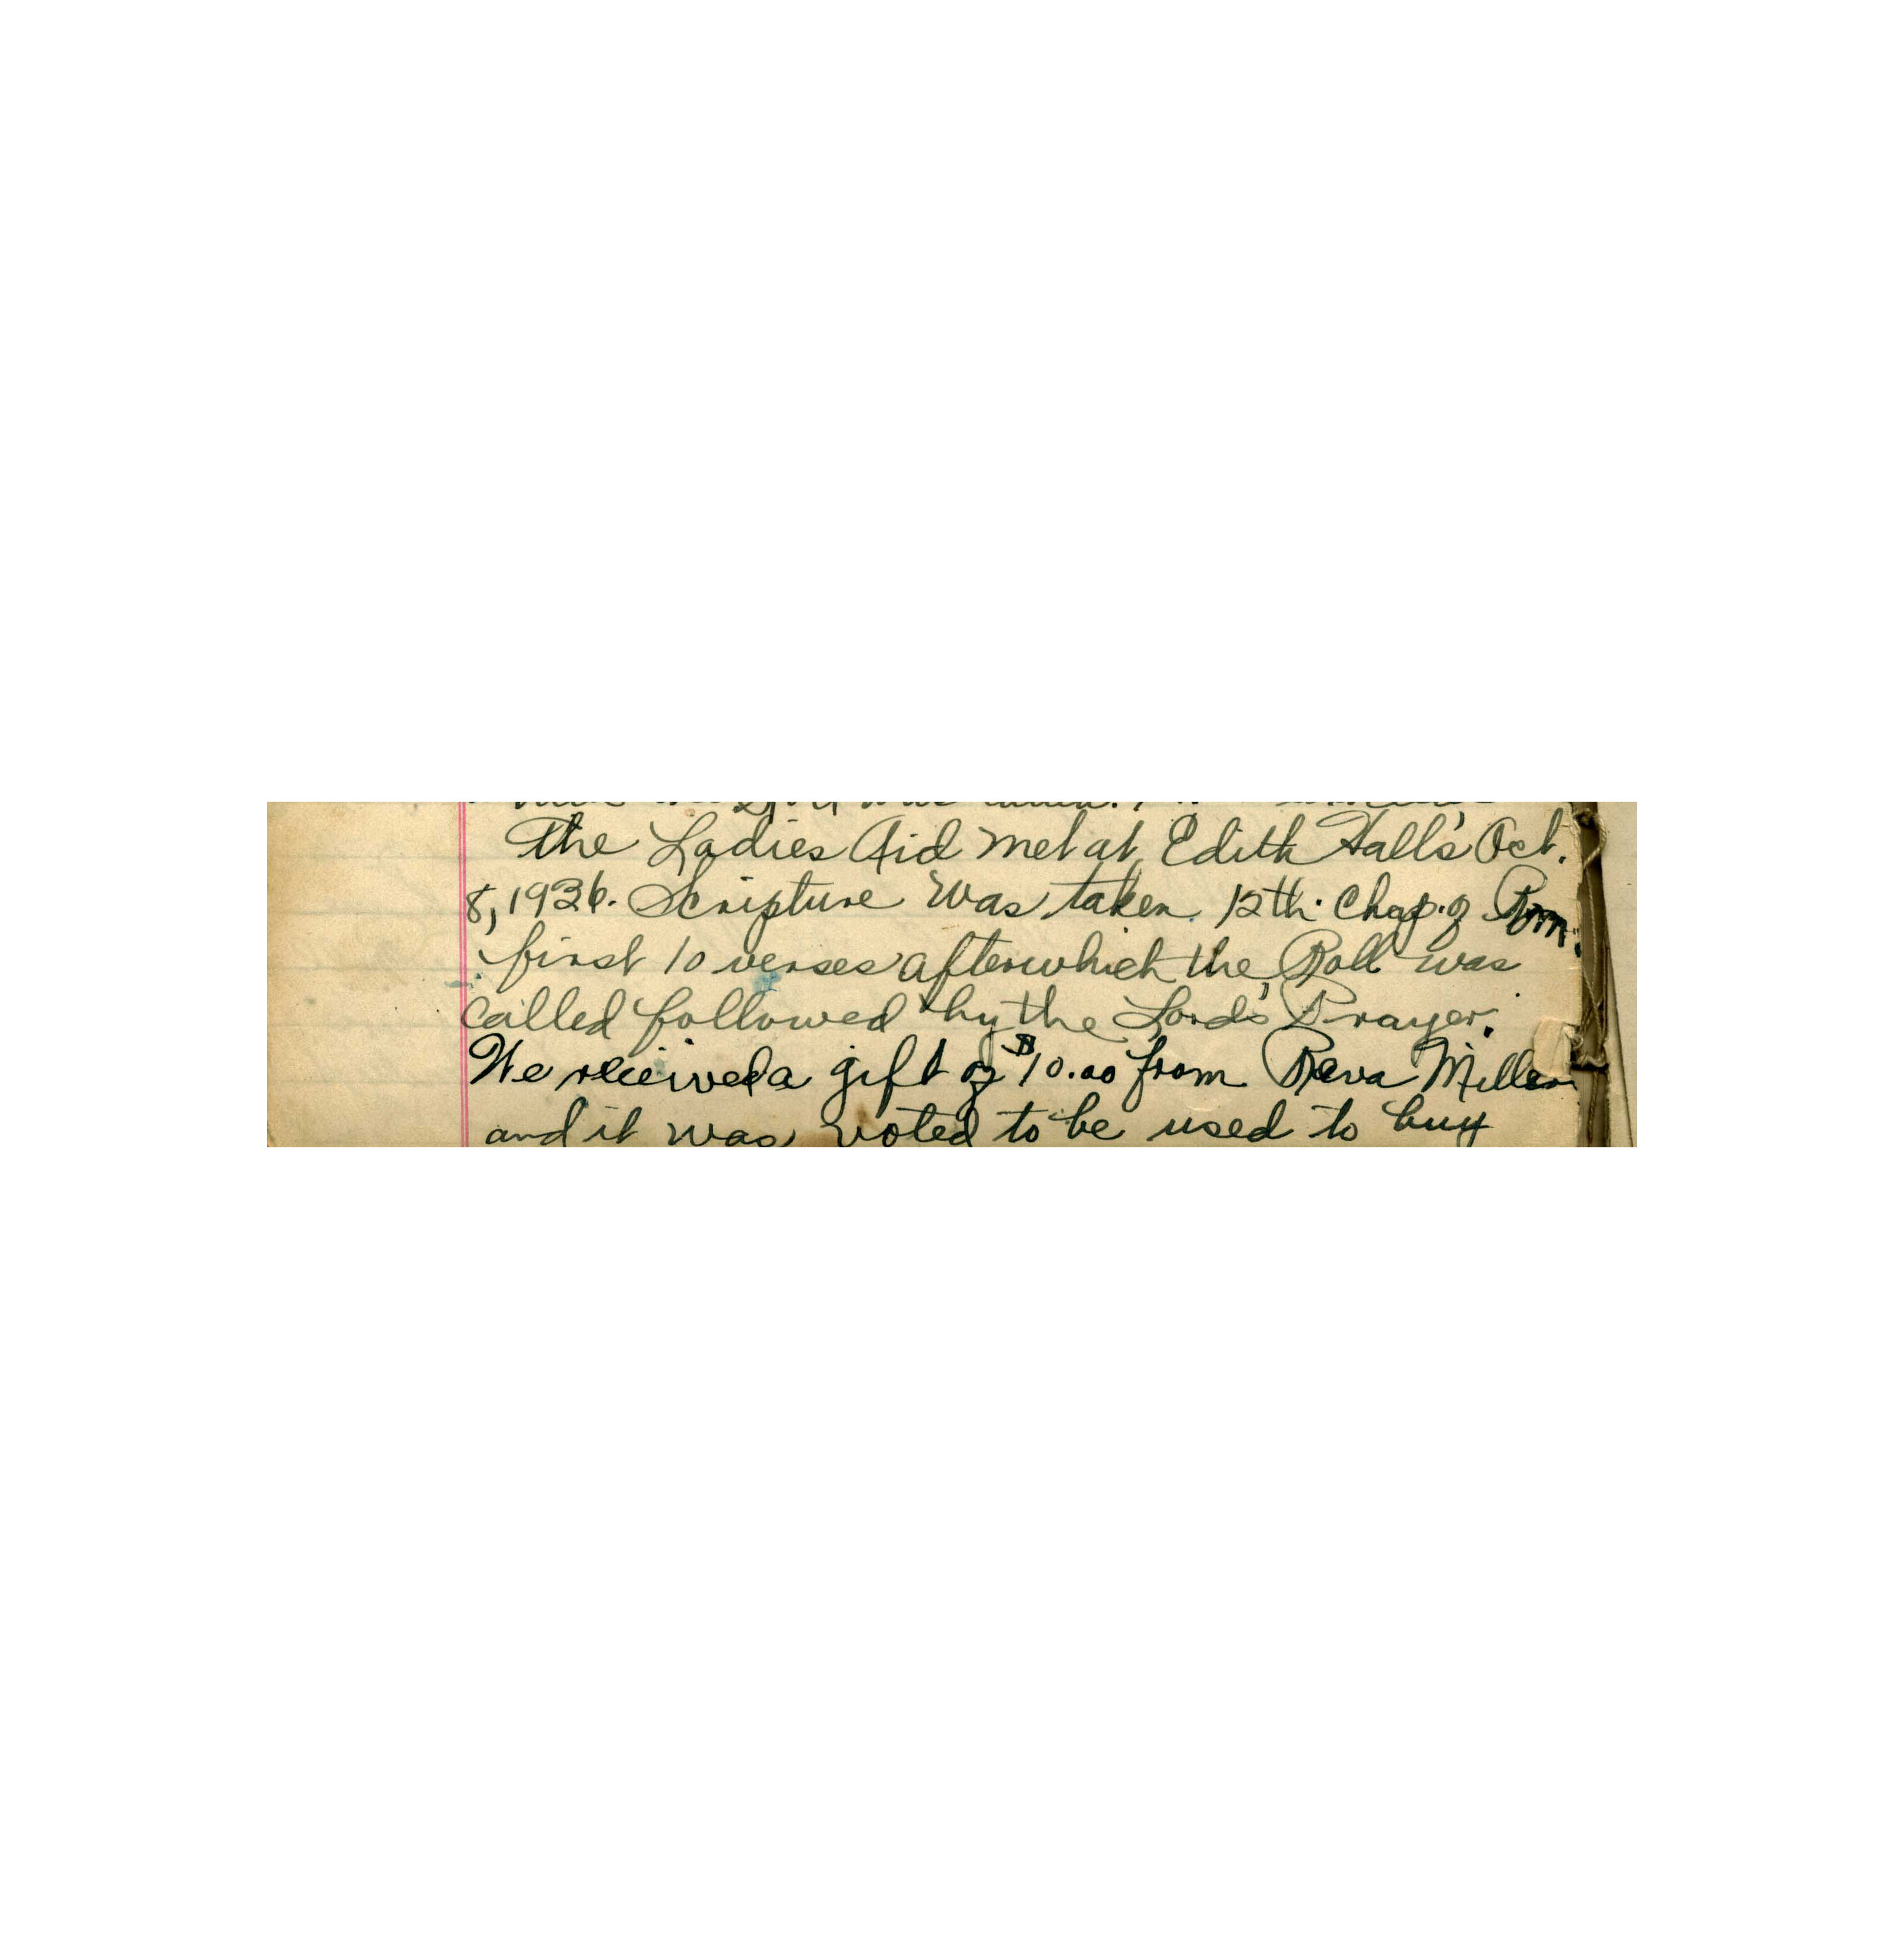 The Ladies Aid met at Edith Hall's Oct.
8, 1936. Scripture was taken. 12th. Chap. of Rom.
first 10 verses afterwhich the Roll was
called followed by the Lord's Prayer.
We received a gift of $10.00 from Reva Miller
and it was voted to be used to buy